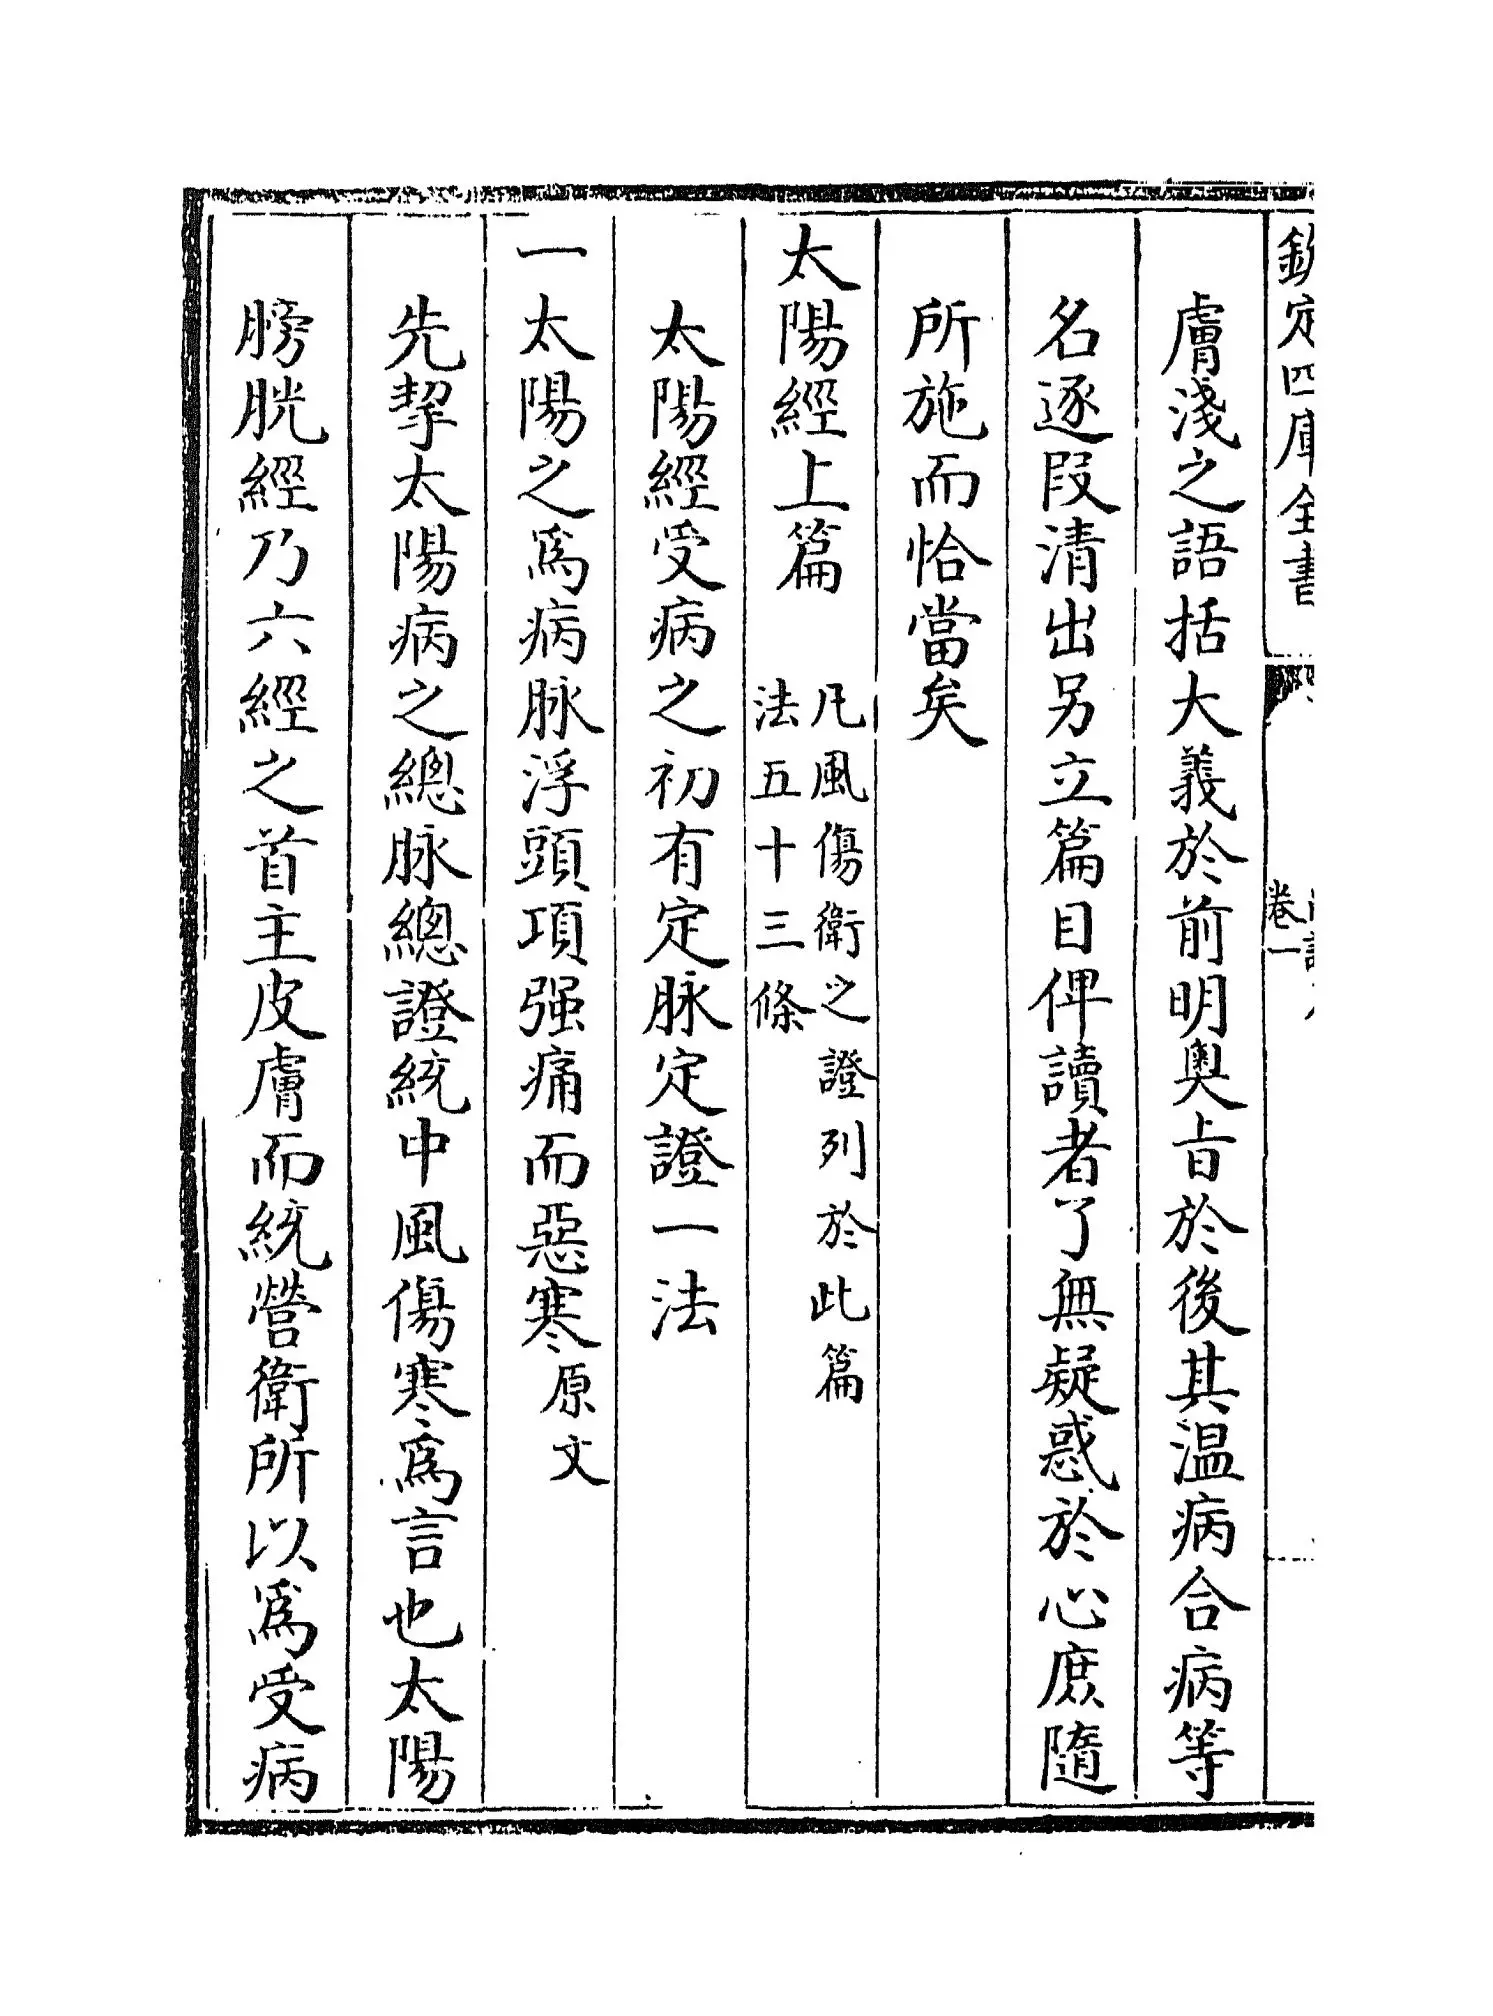 欽定四庫全書
卷一
膚淺之語括大義於前明奥㫖於後其温病合病等
名逐段清出另立篇目俾讀者了無疑惑於心庶隨
所施而恰當矣
太陽經上篇
凡風傷衛之證列於此篇
法五十三條
太陽經受病之初有定脉定證一法
一太陽之爲病脉浮頭項强痛而惡寒原文
先挈太陽病之總脉總證統中風傷寒爲言也太陽
膀胱經乃六經之首主皮膚而統營衛所以爲受病